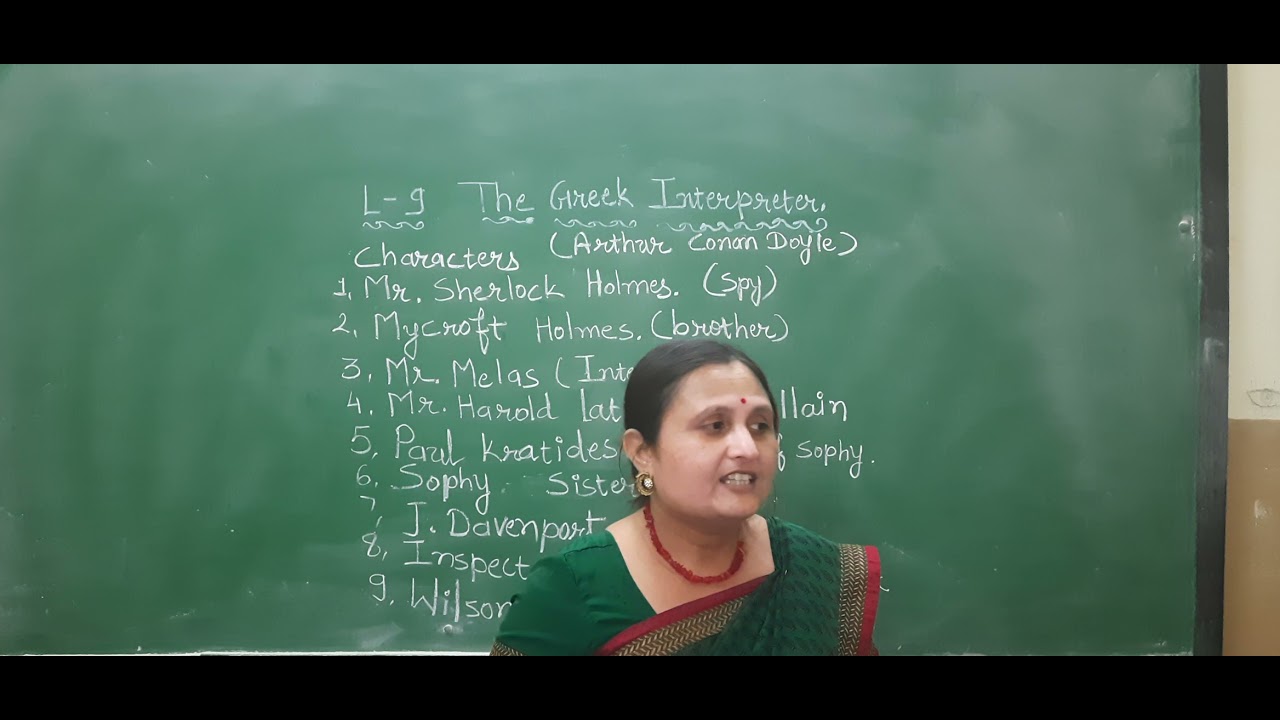 L-9 The Greek Interpreter.
Characters (Arthur Conan Doyle)
1. Mr. Sherlock Holmes. (Spy)
2. Mycroft Holmes. (brother)
3. Mr. Melas (Inte
4. Mr. Harold lat llain
5. Paul Kratides of Sophy.
6. Sophy Sister
7, J. Davenport
8. Inspect
9. Wilson